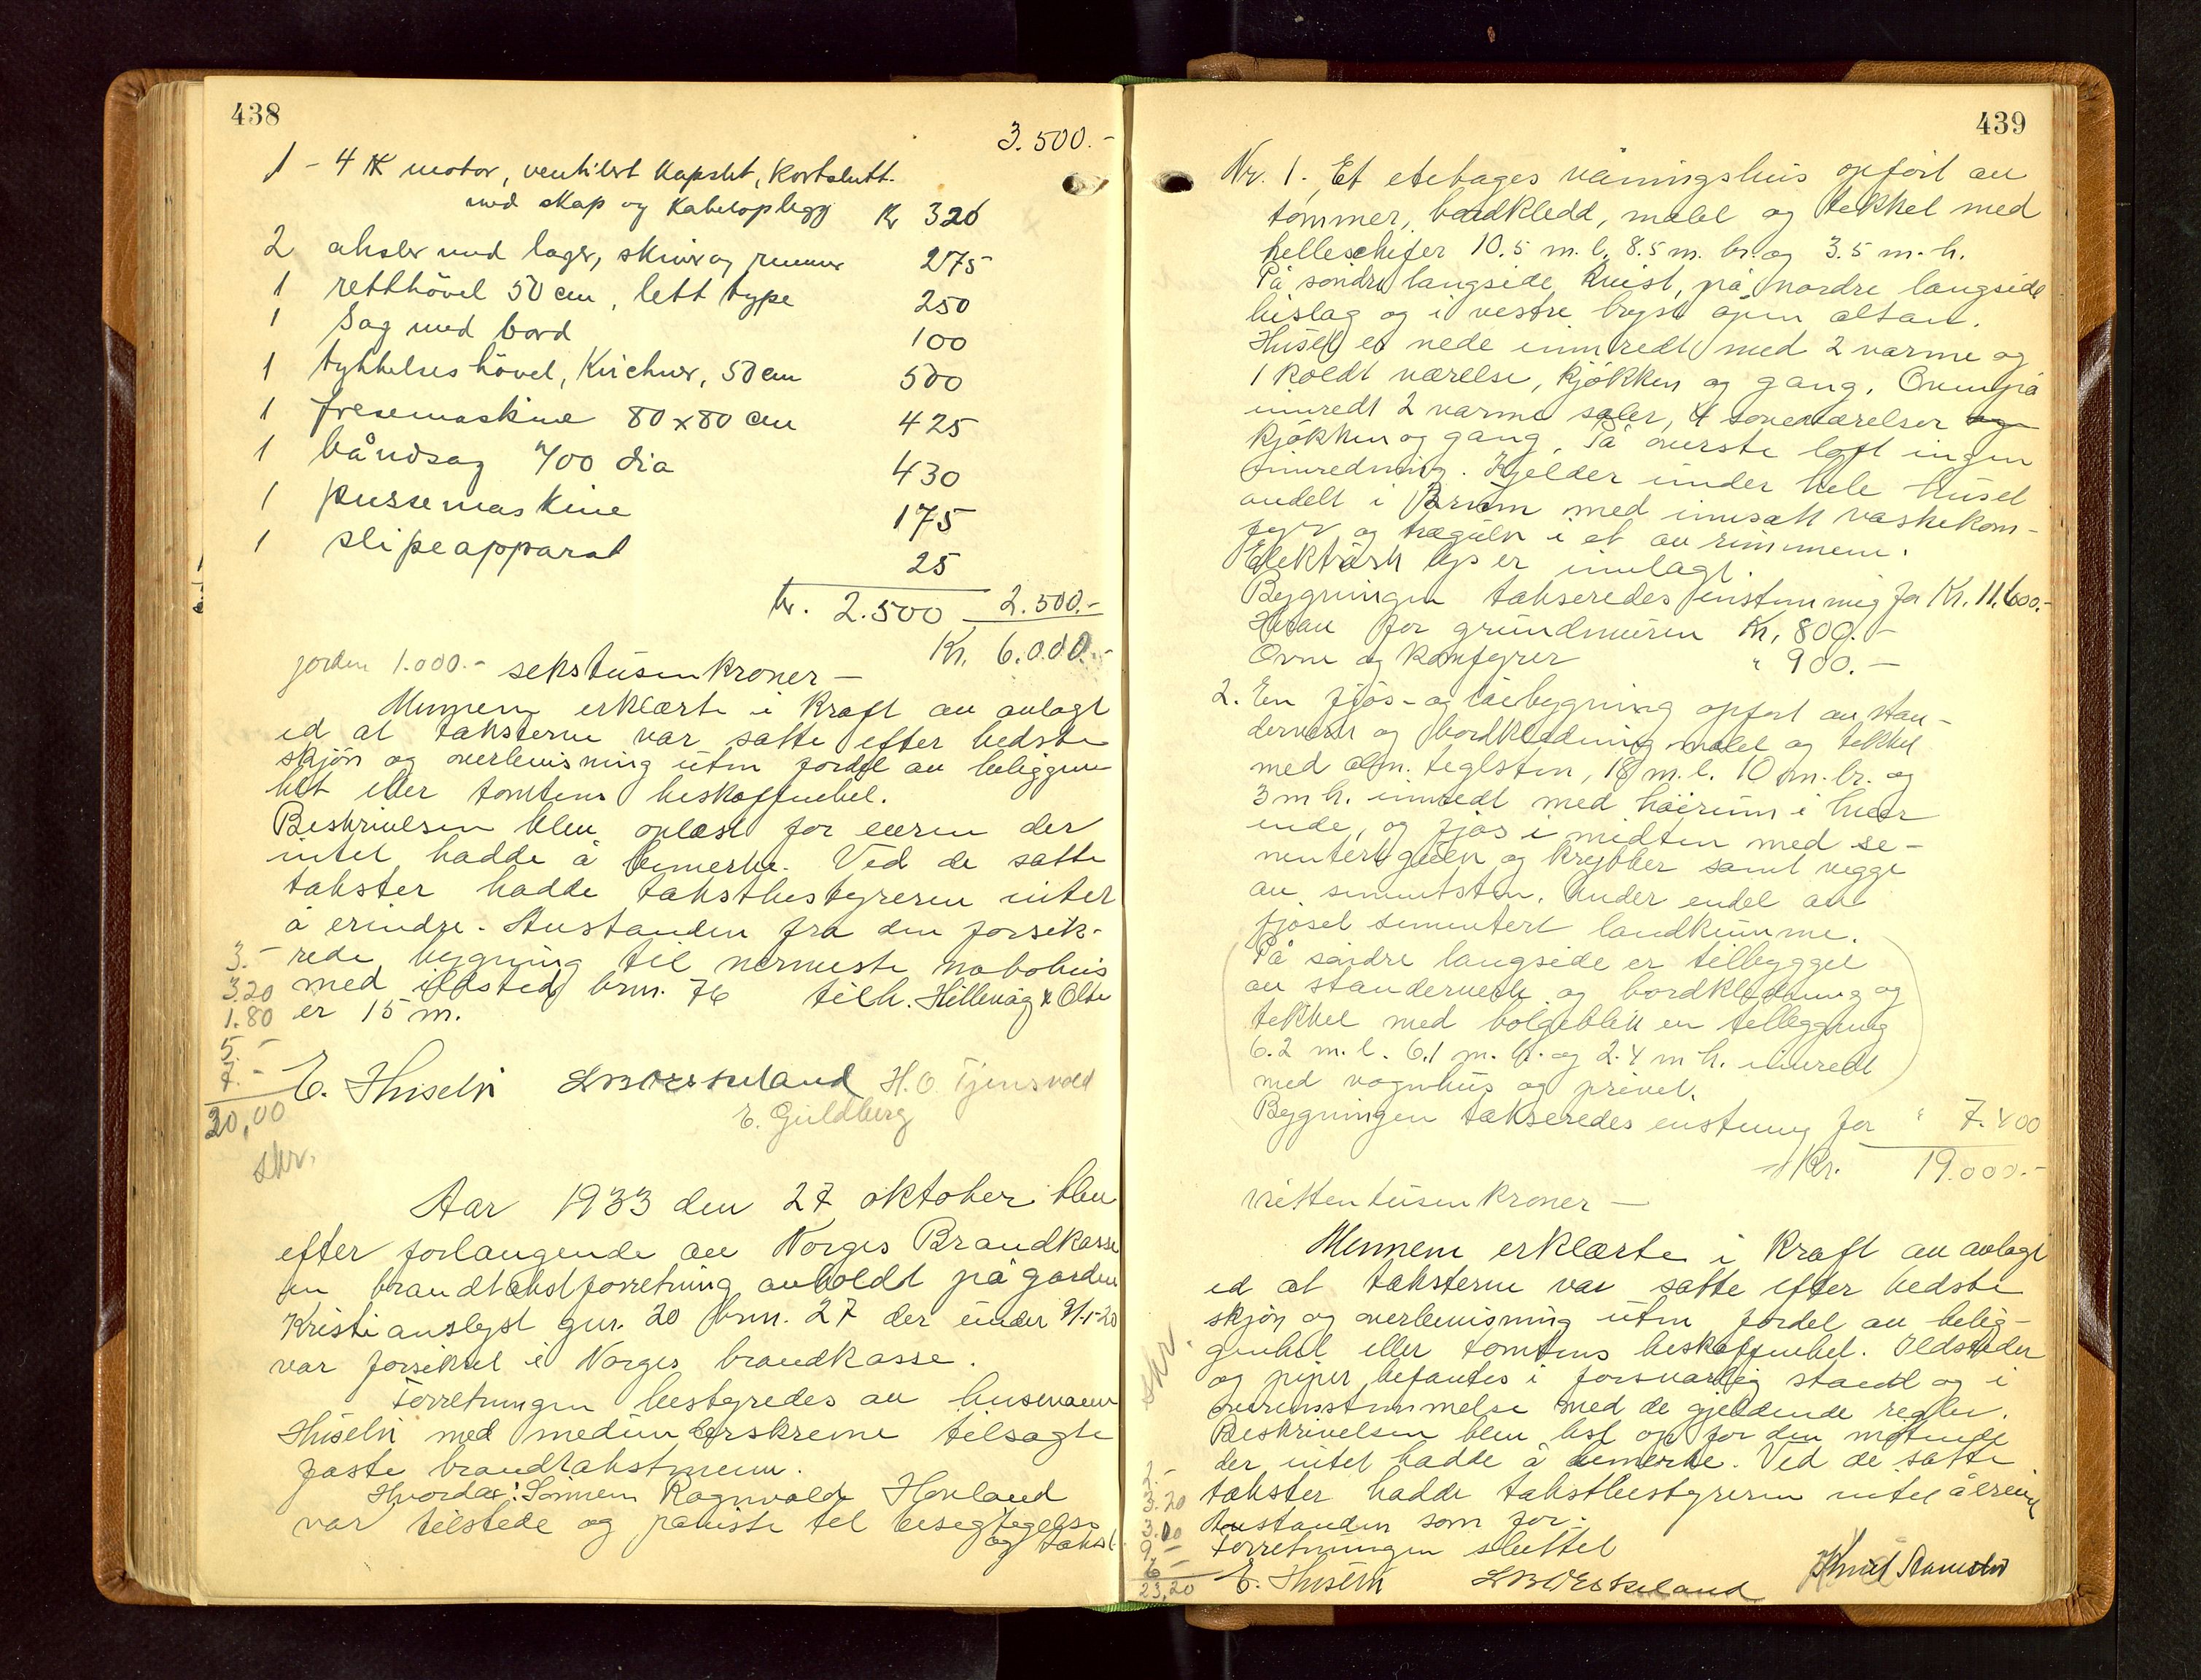 438
3.500.-
1 - 4 HK motor, ventilert kapslet, kortslutt.
med skap og kabeloplegg Kr 320
2 aksler med lager, skiver og remmer 275
1 retthövel 50 cm, lett type 250
1 Sag med bord 100
1 tykkelseshövel, Kirchner, 50 cm 500
1 fresemaskine 80 x 80 cm 425
1 båndsag 700 dia 430
1 pussemaskine 175
1 slipeapparat 25
kr. 2.500 2.500.-
Kr. 6.000.-
jorden 1.000.- sekstusenkroner -
Mennene erklærte i kraft av avlagt
ed at taksterne var satte efter bedste
skjön og overbevisning uten fordel av beliggen
het eller tomtens beskaffenhet.
Beskrivelsen blev oplæst for eieren der
intet hadde å bemerke. Ved de satte
takster hadde takstbestyreren intet
å erindre. Avstanden fra den forsik-
3.- rede bygning til nermeste nabohus
3.20 med ildsted brn. 76 tilh. Hillevåg &
1.80 er 15 m.
5.-
7.-
20,00
E. Huseby H. O. Tjensvold
E. Guldberg
skr.
Aar 1933 den 27 oktober blev
efter forlangende av Norges Brandkasse
en brandtakstforretning avholdt på garden
Kristianslyst gnr. 20 brn. 27 der under
var forsikret i Norges brandkasse.
Forretningen bestyredes av
med medunderskrevne tilsagte
faste brandtakstmenn.
Hvorda: Sönnen Ragnvald Hovland
var tilstede og påviste til besigtigelse
og takst
439
Nr. 1. Et etetages våningshus opfört av
tömmer, bordkledd, malet og tekket med
helleschifer 10.5 m. l. 8.5 m. br. og 3.5 m. h.
På söndre langside kvist, på nordre langside
bislag og i vestre bryst åpen altan.
Huset er nede innredt med 2 varme og
1 koldt værelse, kjökken og gang. Ovenpå
innredt 2 varme saler, 4 soveværelser og
kjökken og gang. På överste loft ingen
innredning. Kjelder under hele huset
avdelt i rum med innsatt vaskekom-
fyr og trægulv i et av rummene.
Elektrisk lys er innlagt.
Bygningen takseredes enstemmig for Kr. 11.600.-
Herav for grundmuren Kr. 800.-
Ovne og komfyrer " 900.-
2. En fjös- og löebygning opfört av stan-
derverk og bordkledning malet og tekket
med alm. teglsten, 18 m. l. 10 m. br. og
3 m h. innredt med höirum i hver
ende, og fjös i midten med se-
menterte gulv og krybber samt vegge
av sementsten. Under endel av
fjöset sementert landkumme.
På söndre langside er tilbygget
av standerverk og bordkledning og
tekket med bölgeblik en tilbygning
6.2 m. l. 6.1 m. b. og 2.4 m h. innredt
med vognhus og privet.
Bygningen takseredes enstemmig for " 7.400
Kr. 19.000.-
nittentusenkroner -
Mennene erklærte i kraft av avlagt
ed at taksterne var satte efter bedste
skjön og overbevisning uten fordel av belig-
genhet eller tomtens beskaffenhet. Ildsteder
og piper befantes i forsvarlig stand og i
overensstemmelse med de gjeldende regler.
Beskrivelsen blev lest op for den mötende
der intet hadde å bemerke. Ved de satte
takster hadde takstbestyreren intet å erindre
Avstanden som för.
Forretningen sluttet
skr.
3.20
9 -
6 -
23,20
E. Huseby